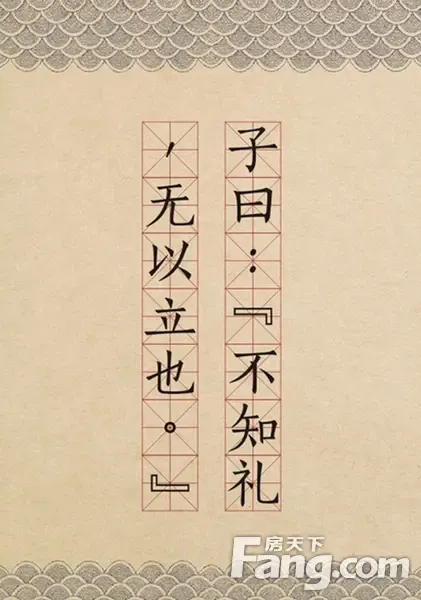 子曰：『不知礼
，无以立也。』
房天下
Fang.com